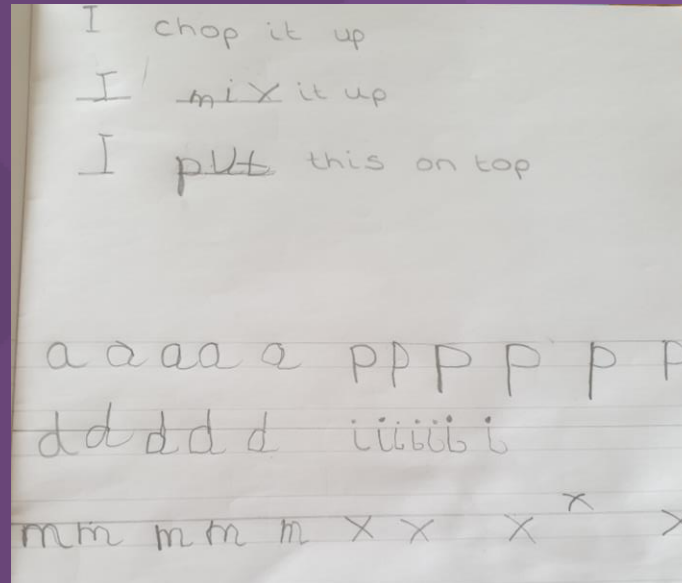 I chop it up
I mix it up
I put this on top
a a a a a p p p p p p
d d d d d i i i i i i i
m m m m m x x x x x